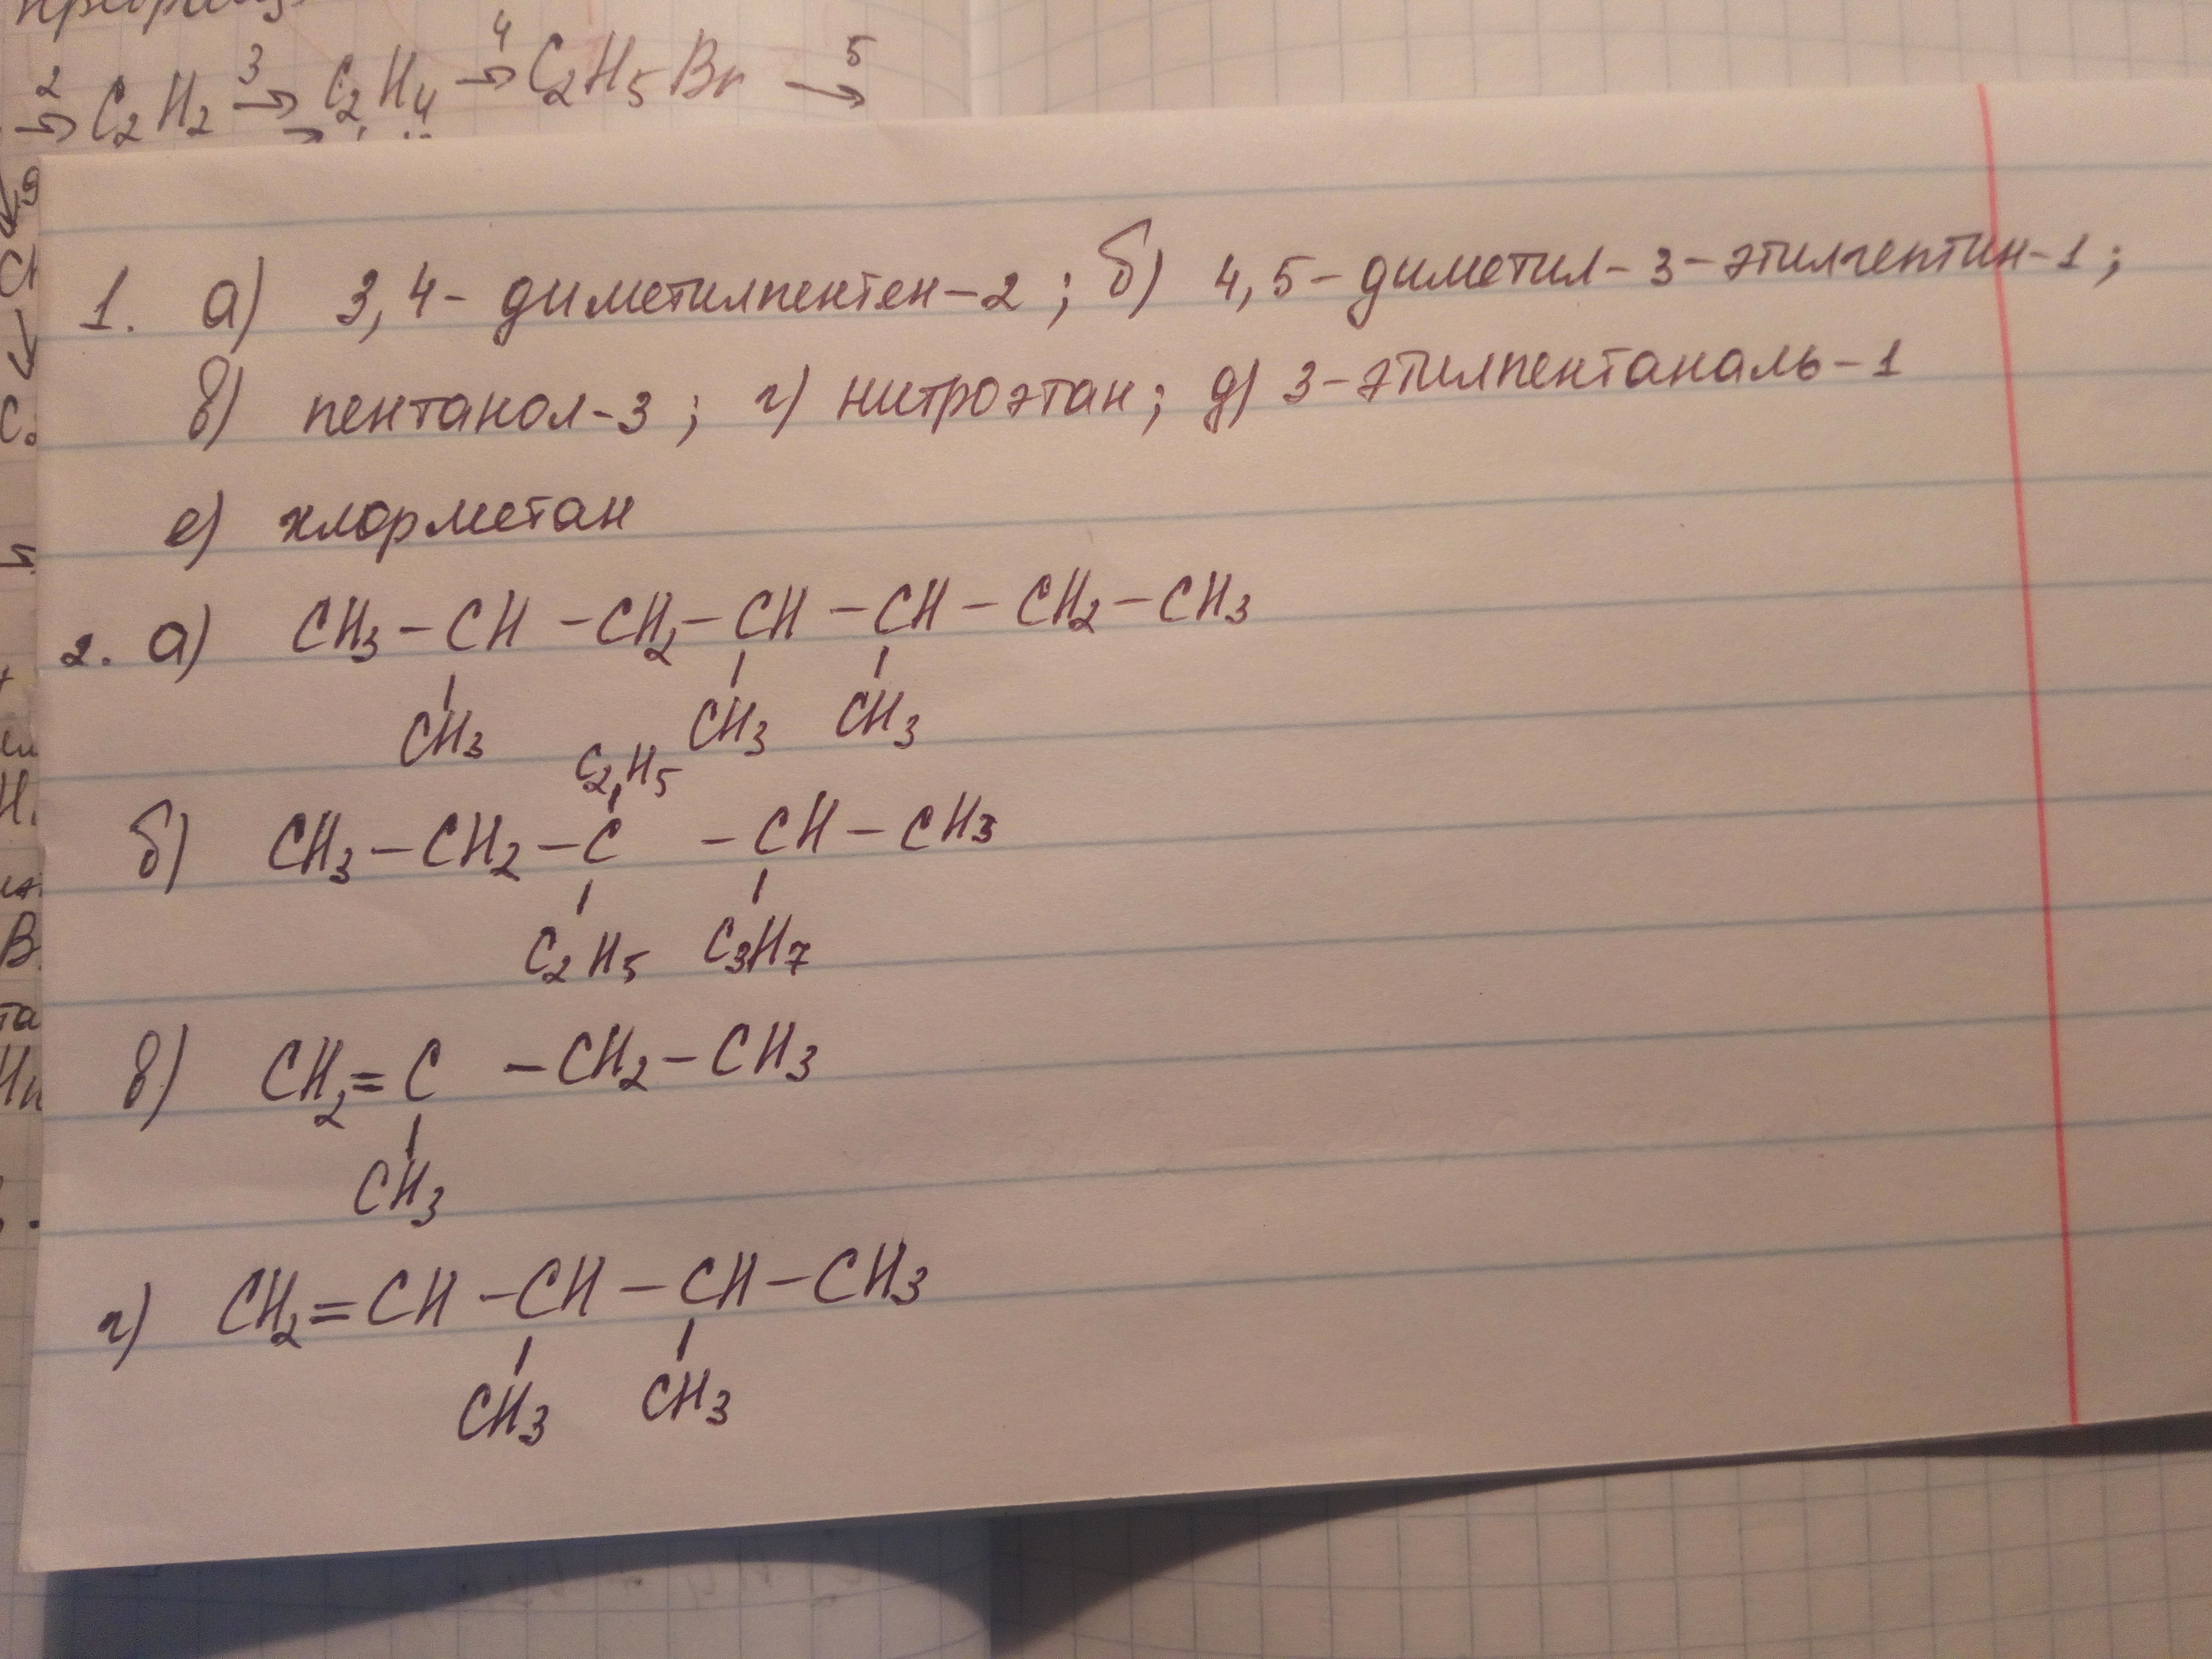 2 3 4 5
→ C₂H₂ → C₂H₄ → C₂H₅Br →
1. а) 3,4- диметилпентен-2; б) 4,5-диметил-3-этилгептин-1;
в) пентанол-3; г) нитроэтан; д) 3-этилпентаналь-1
е) хлорметан
2. а) CH₃-CH-CH₂-CH-CH-CH₂-CH₃
CH₃ CH₃ CH₃
C₂H₅
б) CH₃-CH₂-C-CH-CH₃
C₂H₅ C₃H₇
в) CH₂=C-CH₂-CH₃
CH₃
г) CH₂=CH-CH-CH-CH₃
CH₃ CH₃